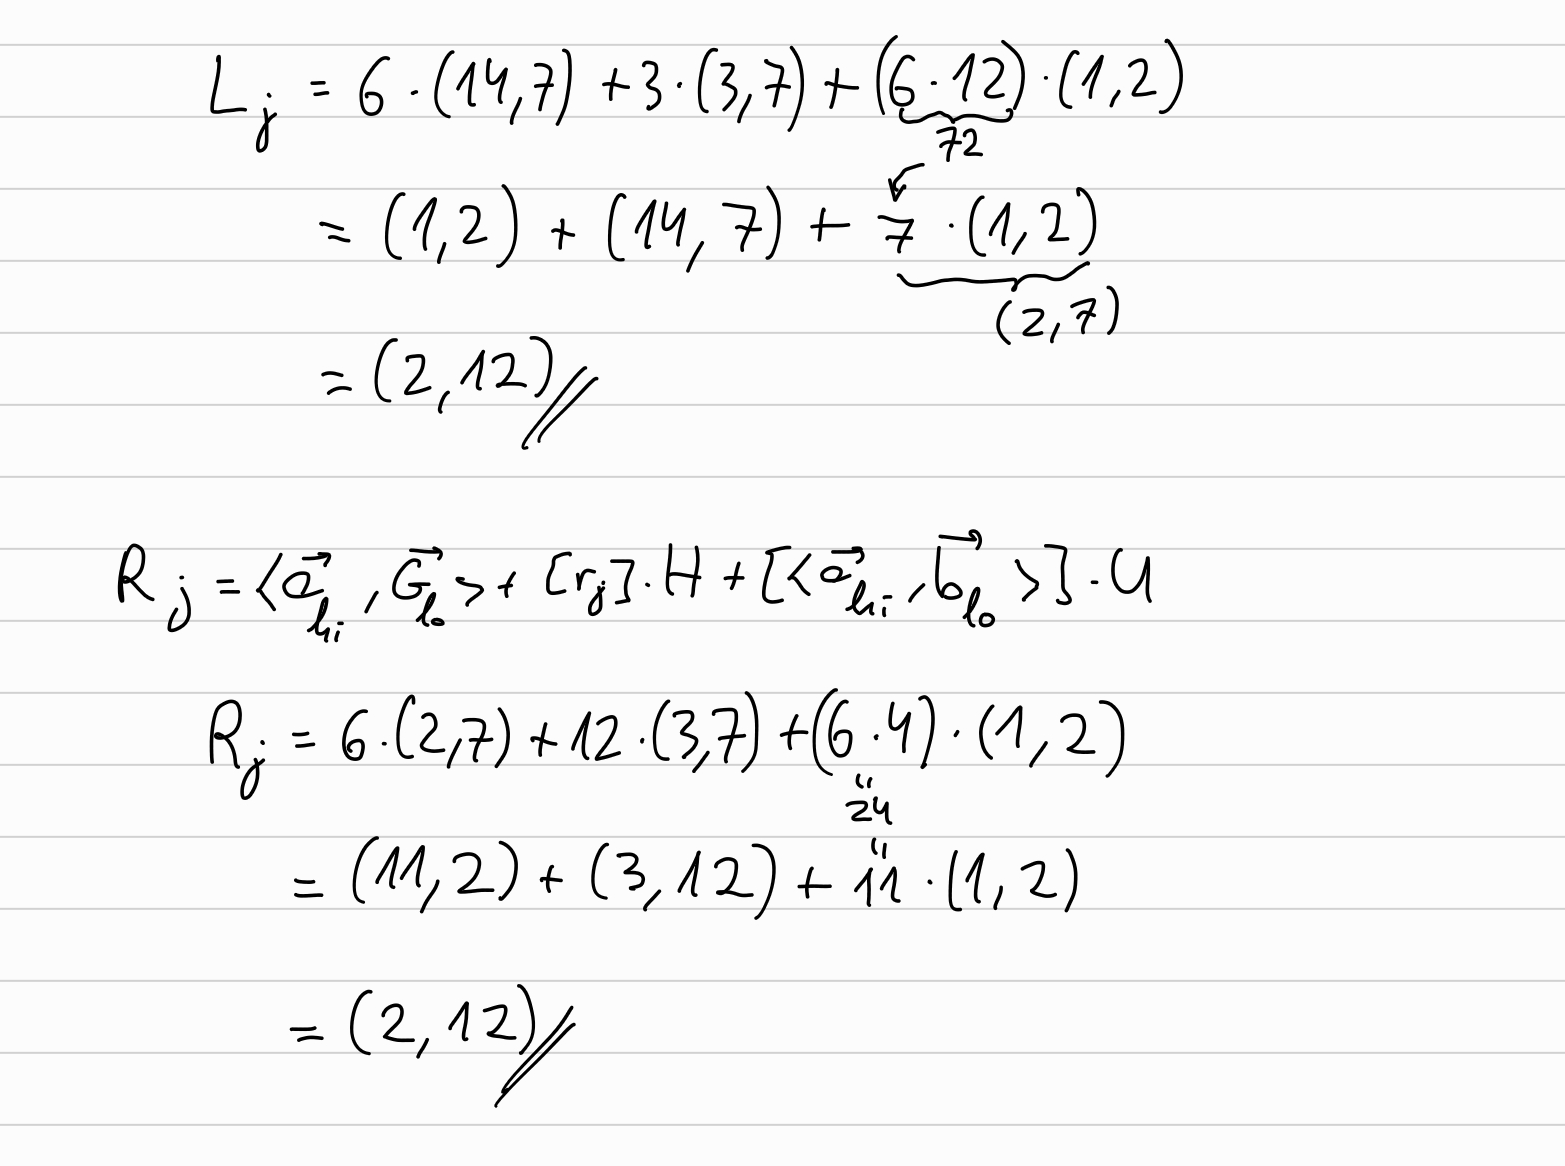 L_j = 6 · (14,7) + 3 · (3,7) + (6 · 12) · (1,2)
72
= (1,2) + (14,7) + 7 · (1,2)
(2,7)
= (2,12)//
R_j = <a⃗_hi , G⃗_lo> + [r_j] · H + [<a⃗_hi , b⃗_lo>] · U
R_j = 6 · (2,7) + 12 · (3,7) + (6 · 4) · (1,2)
"
24
"
= (11,2) + (3,12) + 11 · (1,2)
= (2,12)//